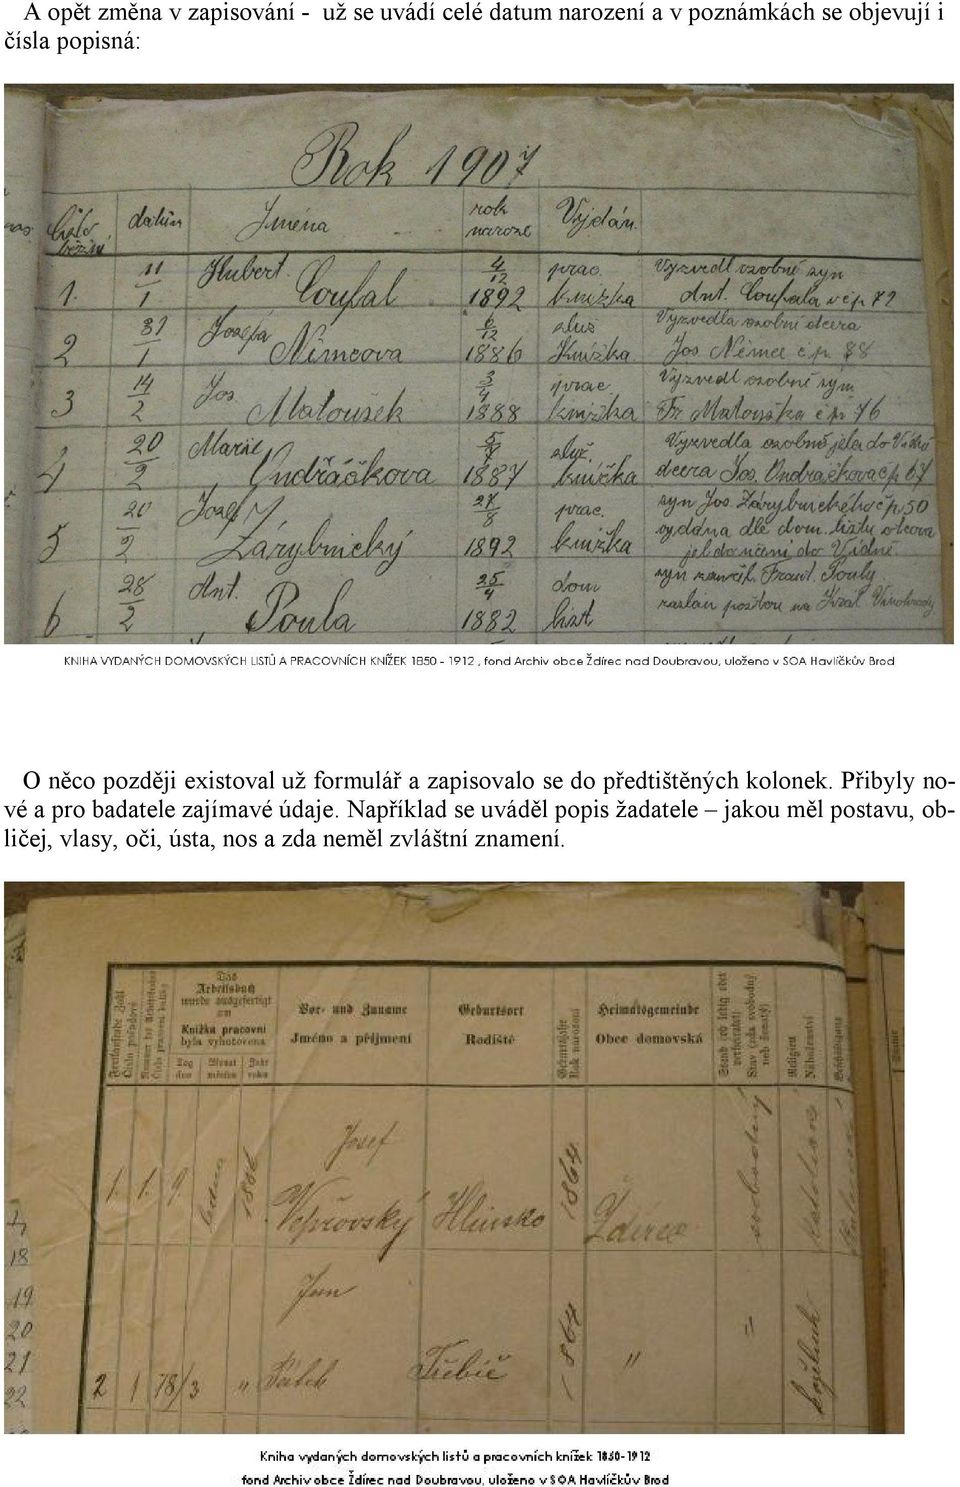 A opět změna v zapisování - už se uvádí celé datum narození a v poznámkách se objevují i
čísla popisná:
Rok 1907
Číslo běžící datum Jména rok naroze Vydán.
1. 11/1 Hubert Coufal 4/12 1892 prac. knižka Vyzvedl osobně syn Ant. Coufala v čp 72
2 31/1 Josefa Němcova 6/12 1886 služ Knižka Vyzvedla osobni dcera Jos Němce č p. 88
3 14/2 Jos. Matoušek 3/4 1888 prac knižka Vyzvedl osobně syn Fr Matouška č p 76
4 20/2 Marie Ondráčkova 1887 služ. knižka Vyzvedla osobně jela do dcera Jos. Ondračkova čp 67
5 20/2 Josef Zárybnický 27/8 1892 prac. knižka syn Jos. Zárybnického čp 50 vydána dle dom. listu otcova do Vídně.
6 28/2 Ant. Poula 25/4 1882 dom list syn Frant. Pouly zaslán poštou na Král Vinohrady
KNIHA VYDANÝCH DOMOVSKÝCH LISTŮ A PRACOVNÍCH KNÍŽEK 1850 - 1912 , fond Archiv obce Ždírec nad Doubravou, uloženo v SOA Havlíčkův Brod
O něco později existoval už formulář a zapisovalo se do předtištěných kolonek. Přibyly no-
vé a pro badatele zajímavé údaje. Například se uváděl popis žadatele – jakou měl postavu, ob-
ličej, vlasy, oči, ústa, nos a zda neměl zvláštní znamení.
Fortlaufende Zahl Číslo pořadové
Das Arbeitsbuch wurde ausgefertigt am
Knižka pracovni byla vyhotovena
Tag dne Monat měsíce Jahr roku
Vor- und Zuname Jméno a přijmení
Geburtsort Rodiště
Geburtsjahr Rok narození
Heimatsgemeinde Obce domovská
Stand (ob ledig oder verheiratet) Stav (zda svobodný neb ženatý)
Religion Náboženství
1. 1. 9. ledna 1886 Josef Vepřovský Hlinsko 1864 Ždírec svobodný
2 1 78/3 " Jan Trebič 1864 " =
18
19
20
21
22
Kniha vydaných domovských listů a pracovních knížek 1850-1912
fond Archiv obce Ždírec nad Doubravou, uloženo v SOA Havlíčkův Brod